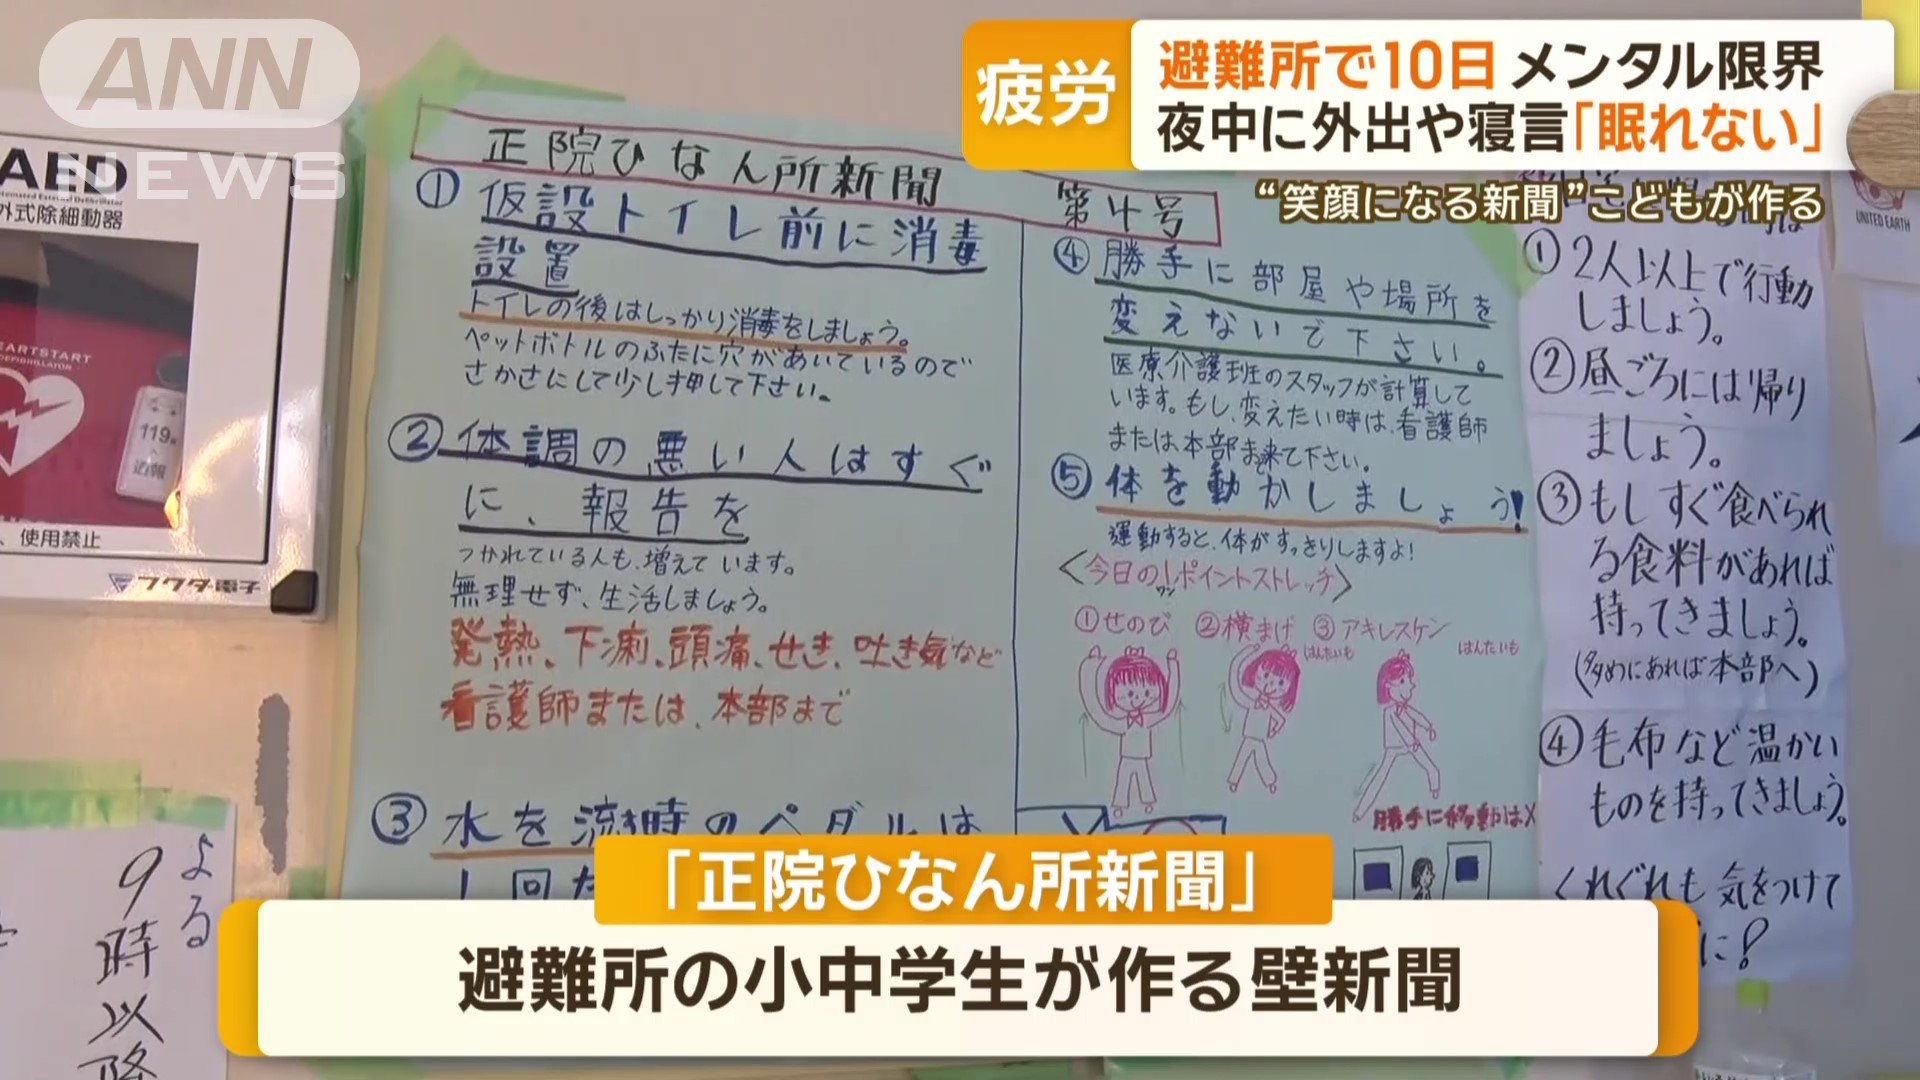 ANN
NEWS
疲労
避難所で10日 メンタル限界
夜中に外出や寝言「眠れない」
“笑顔になる新聞”こどもが作る
AED
外式除細動器
HEARTSTART
DEFIBRILLATOR
119
通報
、使用禁止
フクダ電子
よる
9時以降
正院ひなん所新聞
第4号
① 仮設トイレ前に消毒
設置
トイレの後はしっかり消毒をしましょう。
ペットボトルのふたに穴があいているので
さかさにして少し押して下さい。
② 体調の悪い人はすぐ
に、報告を
つかれている人も、増えています。
無理せず、生活しましょう。
発熱、下痢、頭痛、せき、吐き気など
看護師または、本部まで
③ 水を流す時のペダルは
1回だ
④ 勝手に部屋や場所を
変えないで下さい。
医療介護班のスタッフが計算して
います。もし、変えたい時は、看護師
または、本部まで来て下さい。
⑤ 体を動かしましょう!
運動すると、体がすっきりしますよ!
<今日の1ポイントストレッチ>
ワン
①せのび ②横まげ ③アキレスケン
はんたいも はんたいも
勝手に移動は×
UNITED EARTH
① 2人以上で行動
しましょう。
② 昼ごろには帰り
ましょう。
③ もしすぐ食べられ
る食料があれば
持ってきましょう。
(多めにあれば本部へ)
④ 毛布など温かい
ものを持ってきましょう。
くれぐれも気をつけて
に!
「正院ひなん所新聞」
避難所の小中学生が作る壁新聞